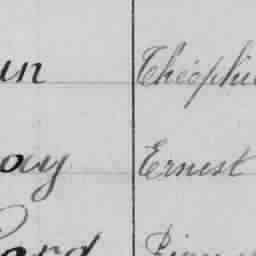 un Théophi
ay Ernest
ard